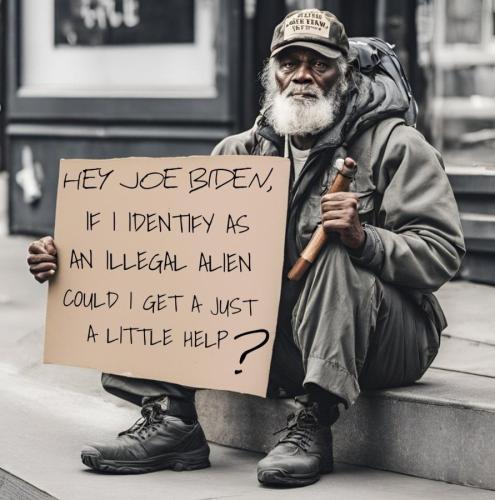 HEY JOE BIDEN,
IF I IDENTIFY AS
AN ILLEGAL ALIEN
COULD I GET A JUST
A LITTLE HELP?